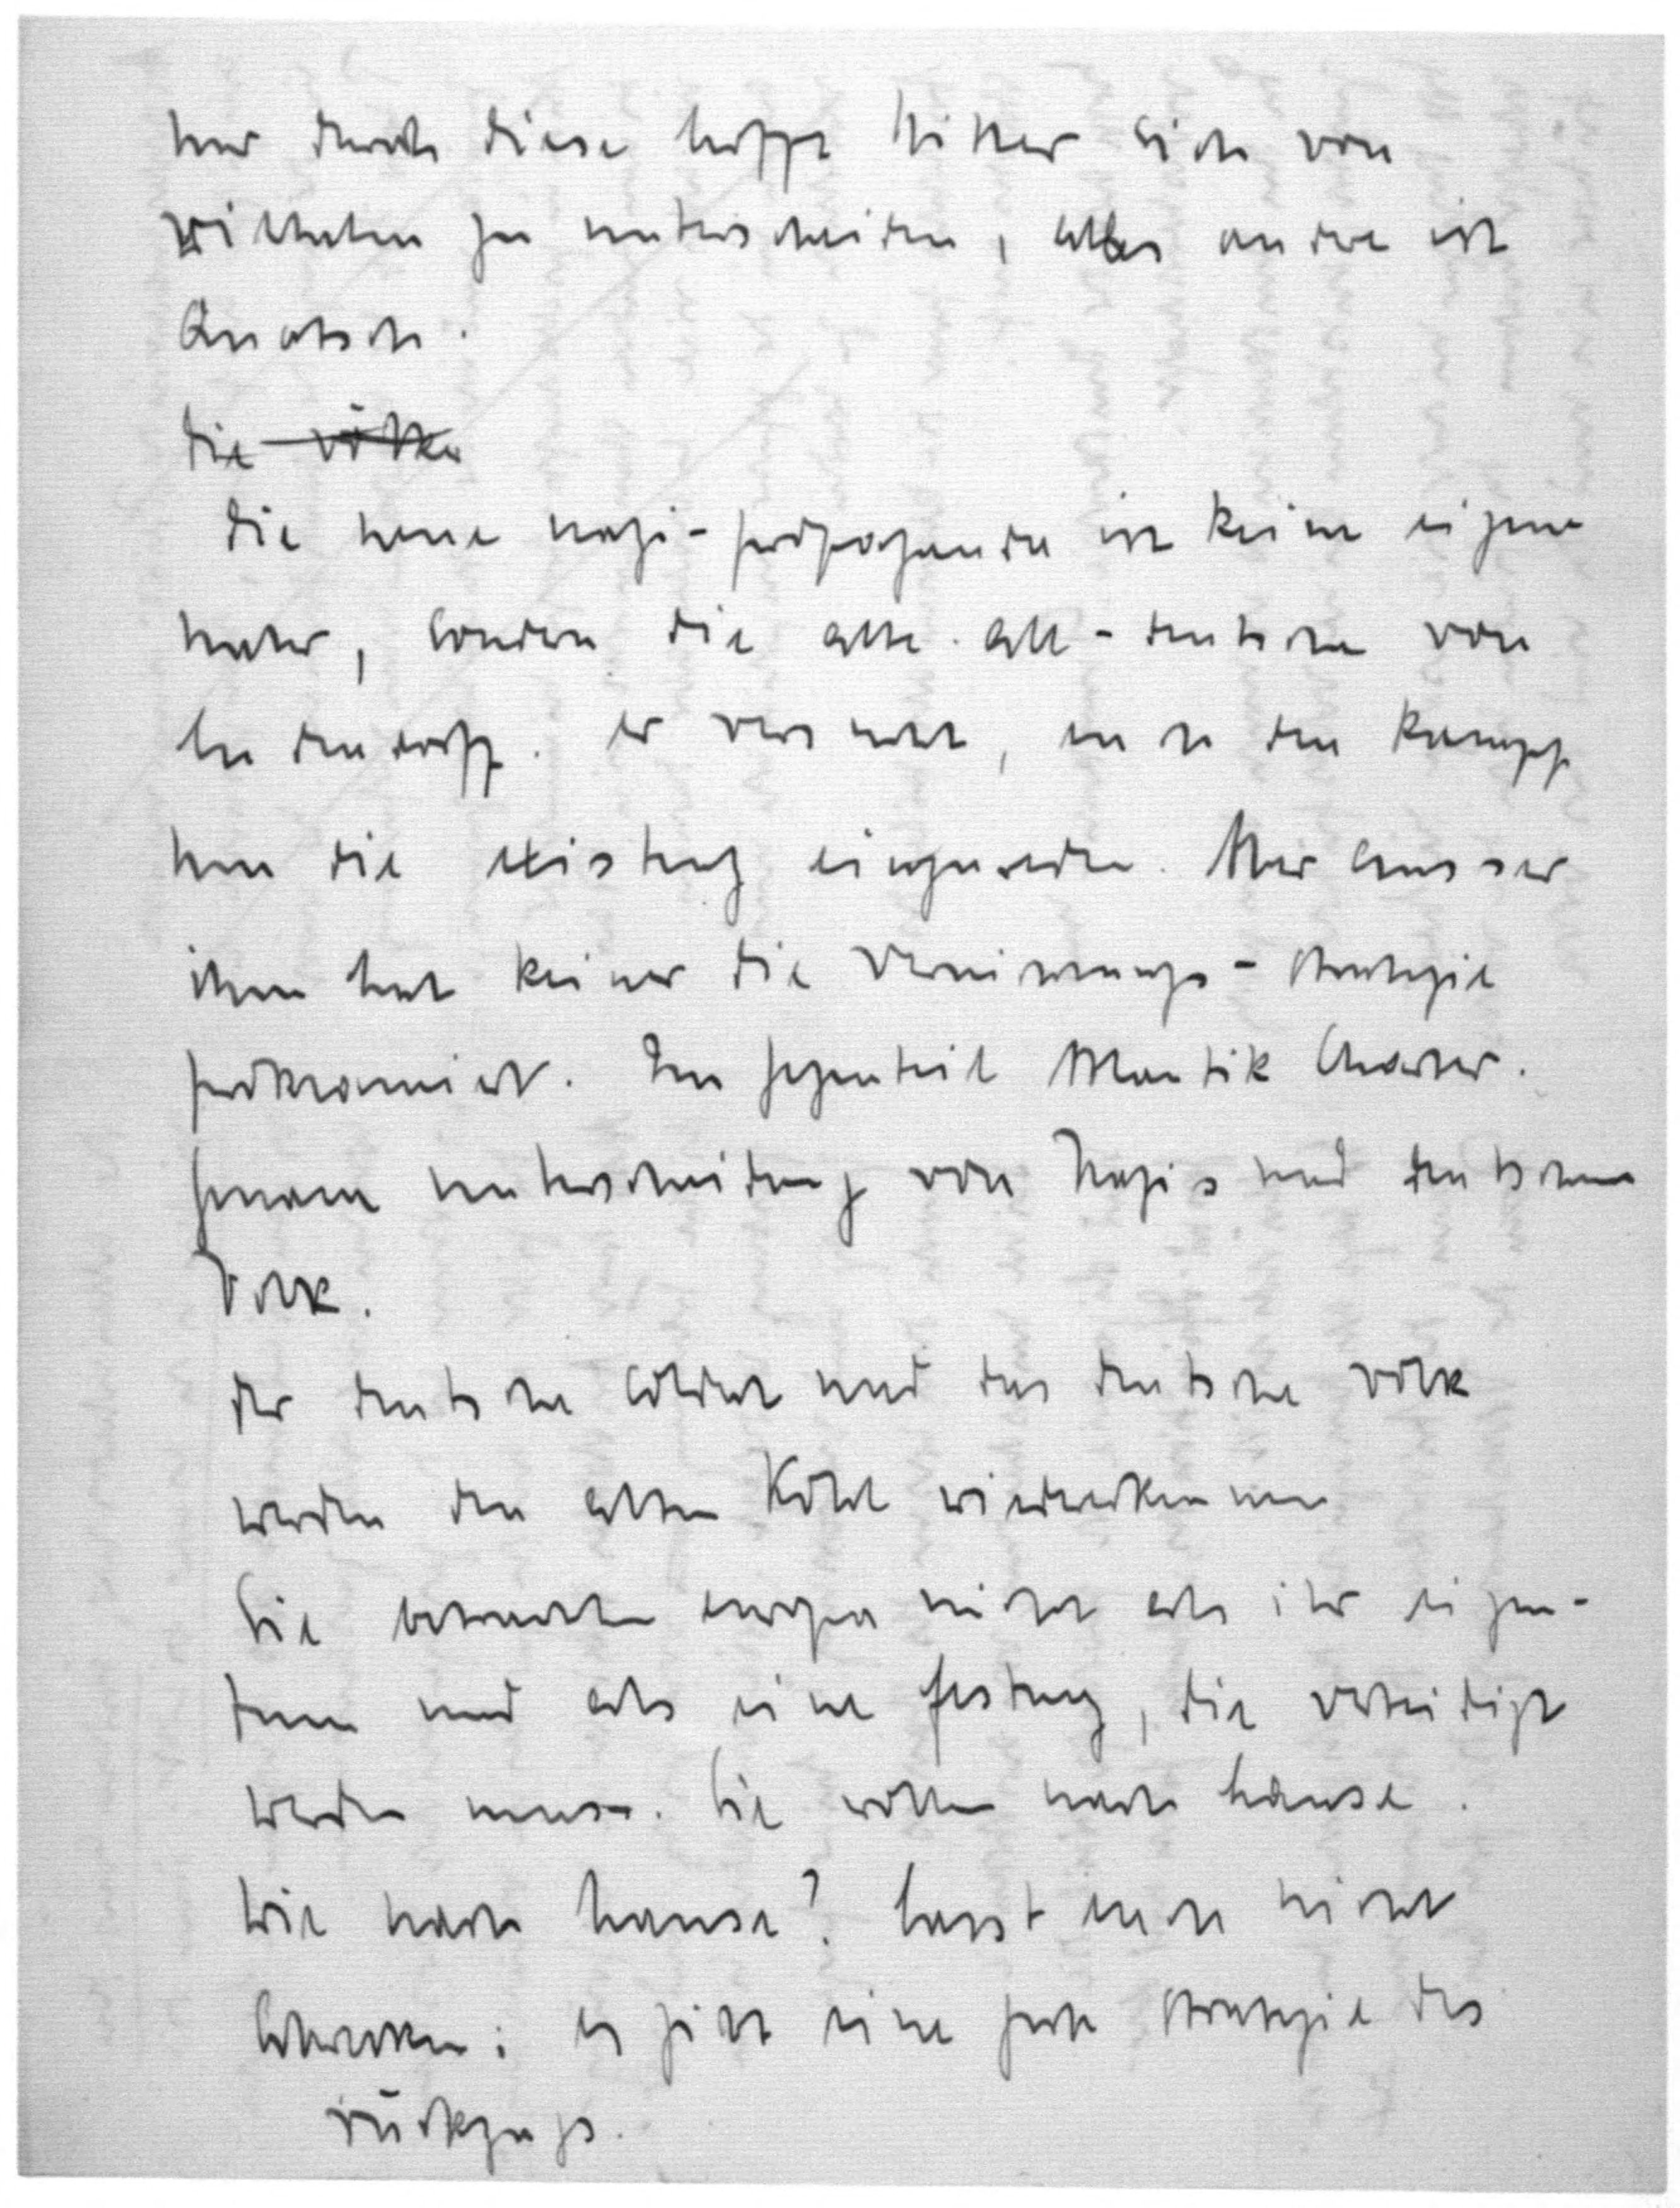 nur durch diese hofft Hitler sich von
Wilhelm zu unterscheiden, alles andre ist
Quatsch.
die völker
die neue nazi-propaganda ist keine eigene
mehr, sondern die alte all-deutsche von
ludendorff. er versucht, euch den kampf
um die existenz einzureden. Aber ausser
ihm hat keiner die Vernichtungs-strategie
proklamiert. Im gegenteil Atlantik Charter.
genaue unterscheidung von Nazis und deutschem
Volk.
der deutsche soldat und das deutsche volk
werden den alten Kohl wiedererkennen
Sie betrachten europa nicht als ihr eigen-
tum und als eine festung, die verteidigt
werden muss. Sie wollen nach hause.
Wie nach hause? lasst euch nicht
schrecken: es gibt eine gute strategie des
rückzugs.